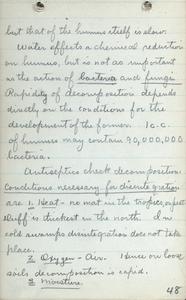 but that of the humus itself is slow.
Water effects a chemical reduction
on humus, but is not as important
as the action of bacteria and fungi.
Rapidity of decomposition depends
directly on the conditions for the
development of the former. 1 c.c.
of humus may contain 90,000,000
bacteria.
Antiseptics check decomposition.
Conditions necessary for disintegration
are. 1. Heat - no mat in the tropics,
Duff is thickest in the north. In
cold swamps disintegration does not take
place.
2 Oxygen - Air. Hence on loose
soils decomposition is rapid.
3 Moisture.
48